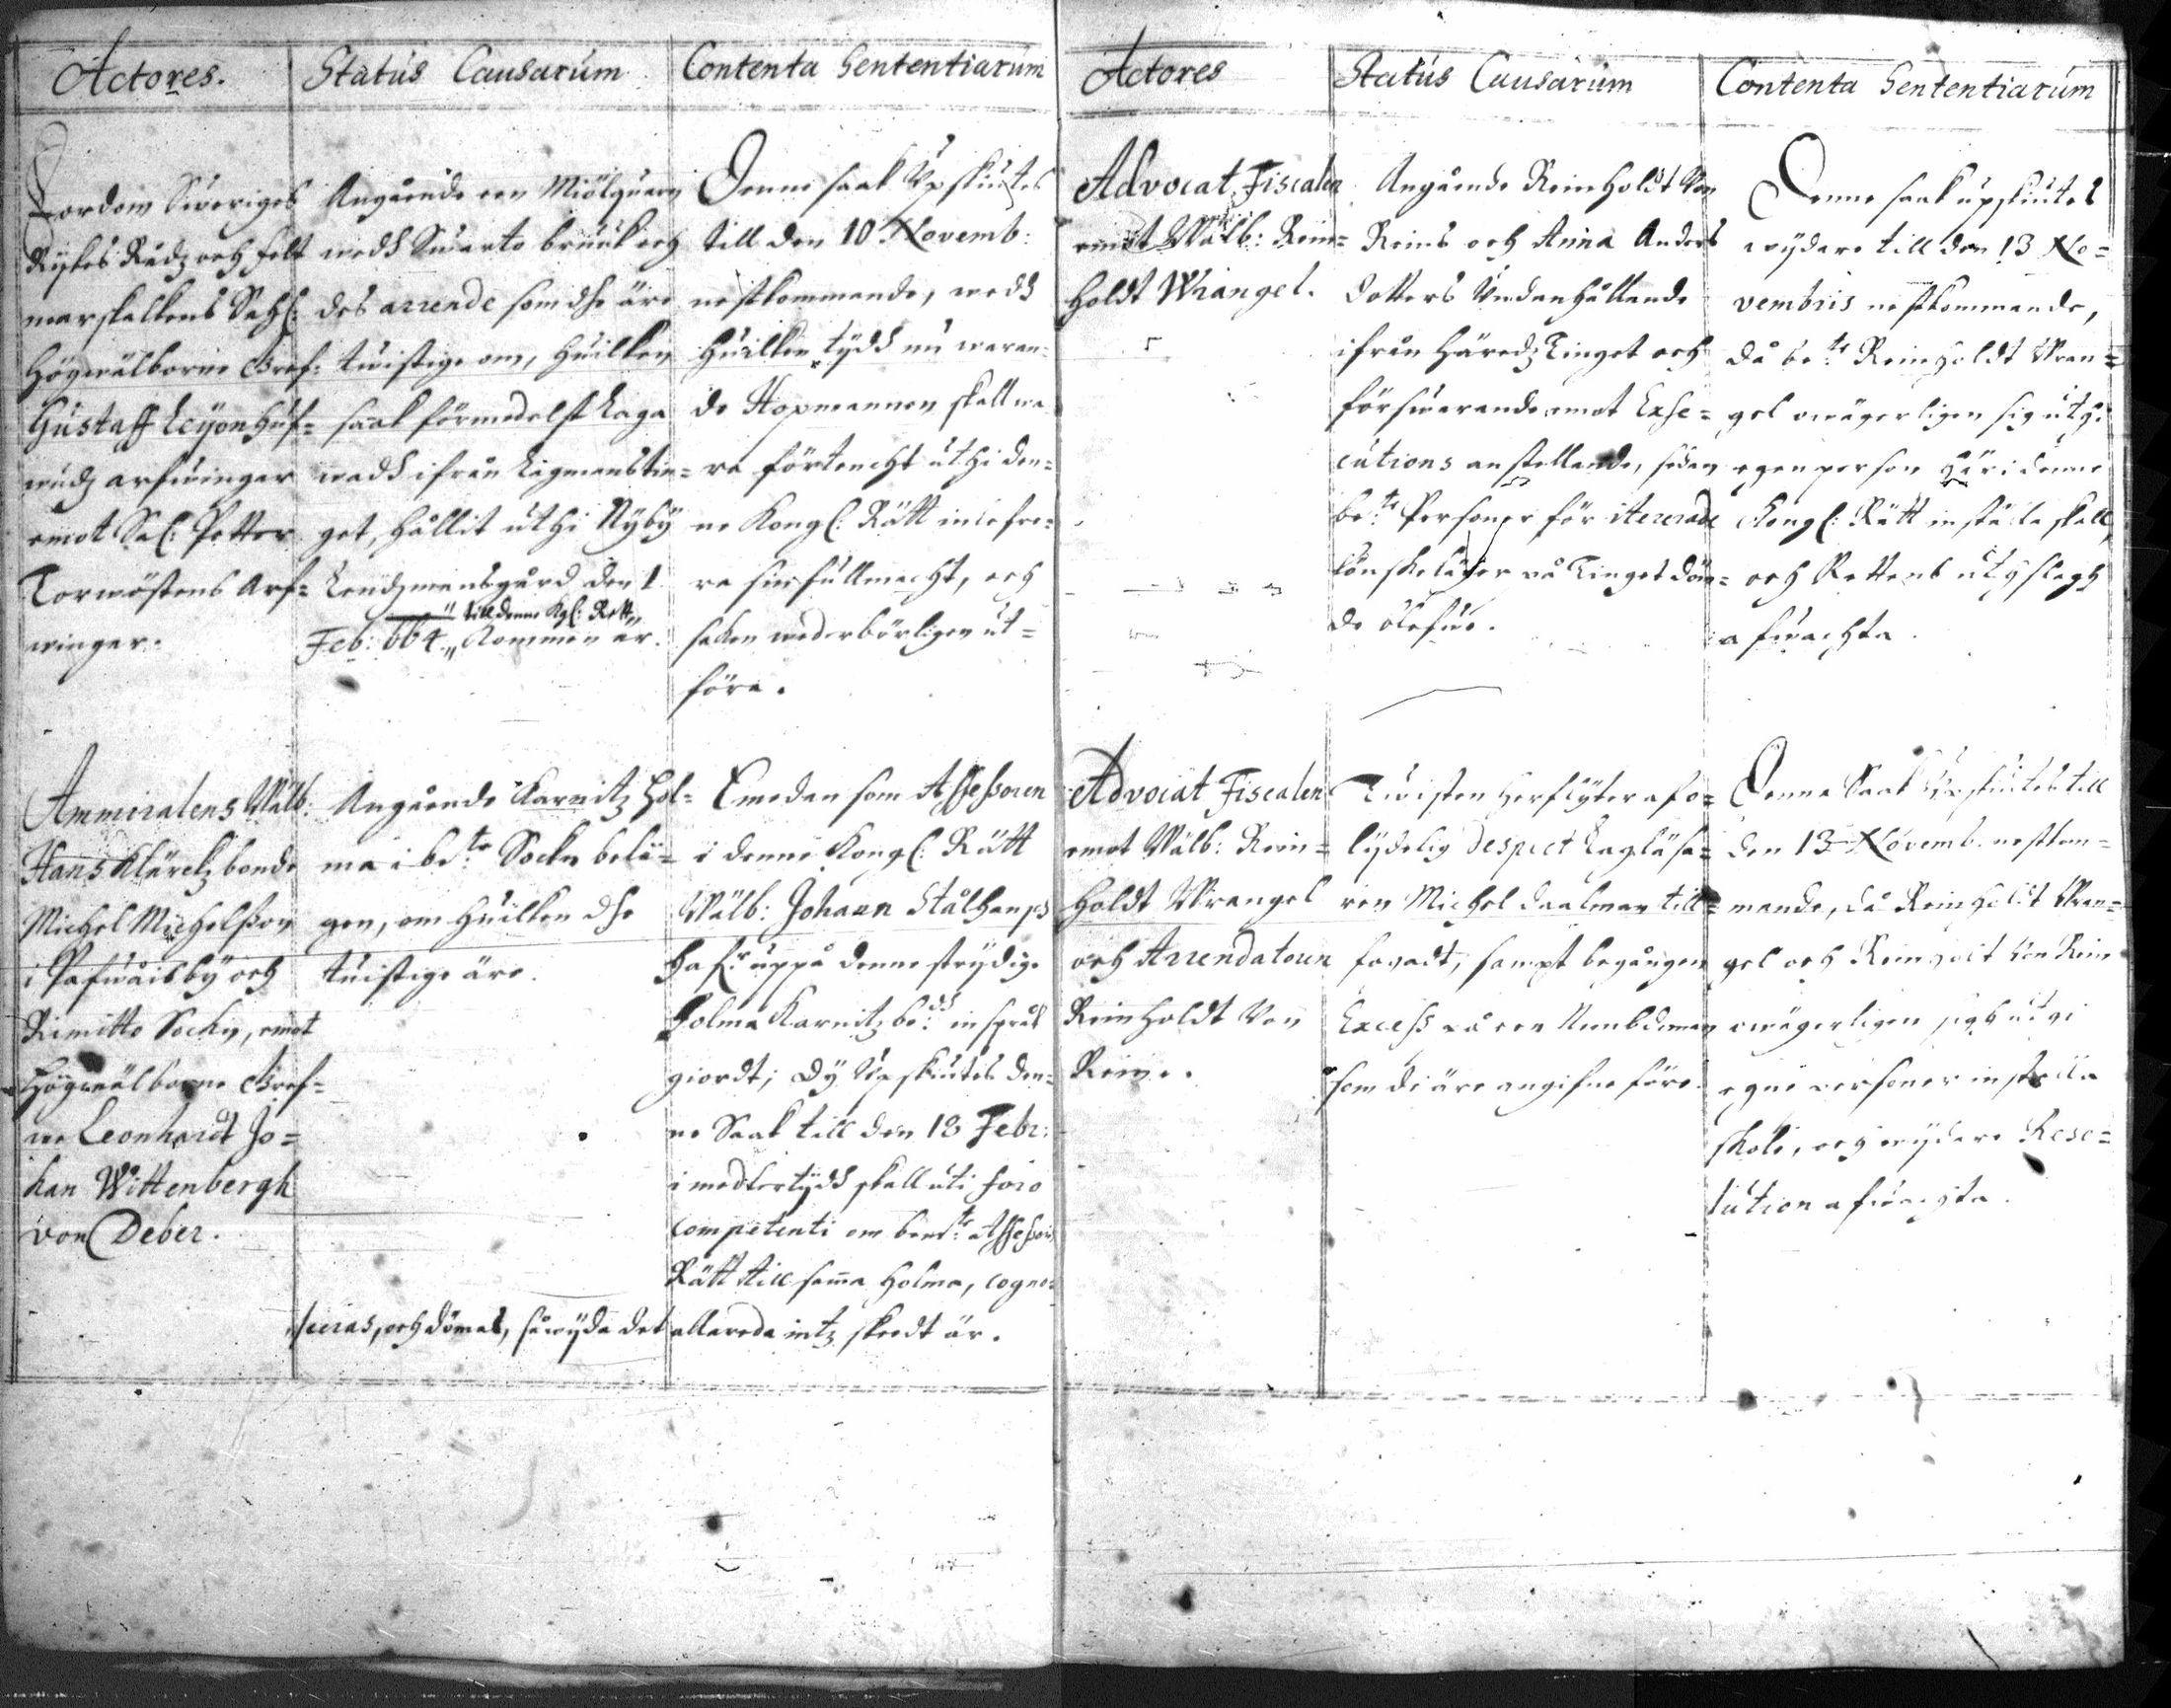 Actores.
Status Causarum
Contenta Sententiarum
Fordom Sweriges
Rijkes Rådz och felt
marskalkens Sahl:
Högwälborne Gref:
Gustaff Leÿonhuf=
wudz arfwingar
emot Sal: Petter
Torwöstens Arf=
wingar.
Angående een Miölquarn
wedh Swarto bruuk och
des arrende som dhe äre
twistige om, huilken
saak förmedelst Laga
wadh ifrån Lagmanstin=
get, hållit uthi Nÿbÿ
Lendzmansgård den 1
till denne Kgl: Rätt
Feb: 664. Kommen är.
Denne saak Upskiutes
till den 10 Novemb:
nestkommande, medh
huilken tijdh nu waran=
de Hopmannen skall wa
ra förtencht uthi den=
ne Kongl: Rätt inlefre=
ra sin fullmacht, och
saken wederbörligen ut=
föra.
Ammiralens Wälb:
Hans Klärckz bonde
Michel Michelsson
i Pafwaisbÿ och
Rimitto Sockn, emot
Högwälborne Gref=
we Leonhardt Jo=
han Wittenbergh
von Deber.
Angående Karnitz Hol=
ma i be:te Sockn belä=
gen, om huilken dhe
tuistige äre.
Emedan som Assessoren
i denne Kongl: Rätt
Wälb: Johan Stålhanss
hafr uppå denne strijdige
holma Karnitz be:dh inspråk
giordt; Dÿ Upskiutes den=
ne Saak till den 18 Febr:
i medlertijdh skall uti foro
competenti om bem:te Assessors
Rätt till sama holma, cogno=
sceras, och dömas, såwijda det allareda intz skedt är.
Actores
Status Causarum
Contenta Sententiarum
Advocat Fiscalen
emot Wälb: Rein=
holdt Wrangel.
Angående Reinholdt Von
Reins och Anna Anders
dotters Undanhållande
ifrån häredz Tinget och
förswarande emot Exse=
cutions anstellande, sedan
be:te Personer för itererade
lönskeläger på Tinget döm=
de blefwe.
Denne saak upskiutes
wijdare till den 13 No=
vembris nestkommande,
då be:te Reinholdt Wran=
gel owägerligen sig uthi
egen person här i denne
Kongl: Rätt inställa skall,
och Rettens uthslagh
afwachta.
Advocat Fiscalen
emot Wälb: Rein=
holdt Wrangel
och Arrendatorn
Reinholdt Von
Rein.
Twisten herflÿter af o=
lijdelig despect Lagläsa=
ren Michel Daalman till=
fogadt, sampt begången
Excess på een Nembdeman
som de äre angifne före.
Denna Saak Upskiutes till
den 13 Novemb. nestkom=
mande, då Reinholdt Wran=
gel och Reinholt von Rein
owägerligen sigh uthi
egne personer inställa
skole, och wijdare Reso=
lution afwachta.